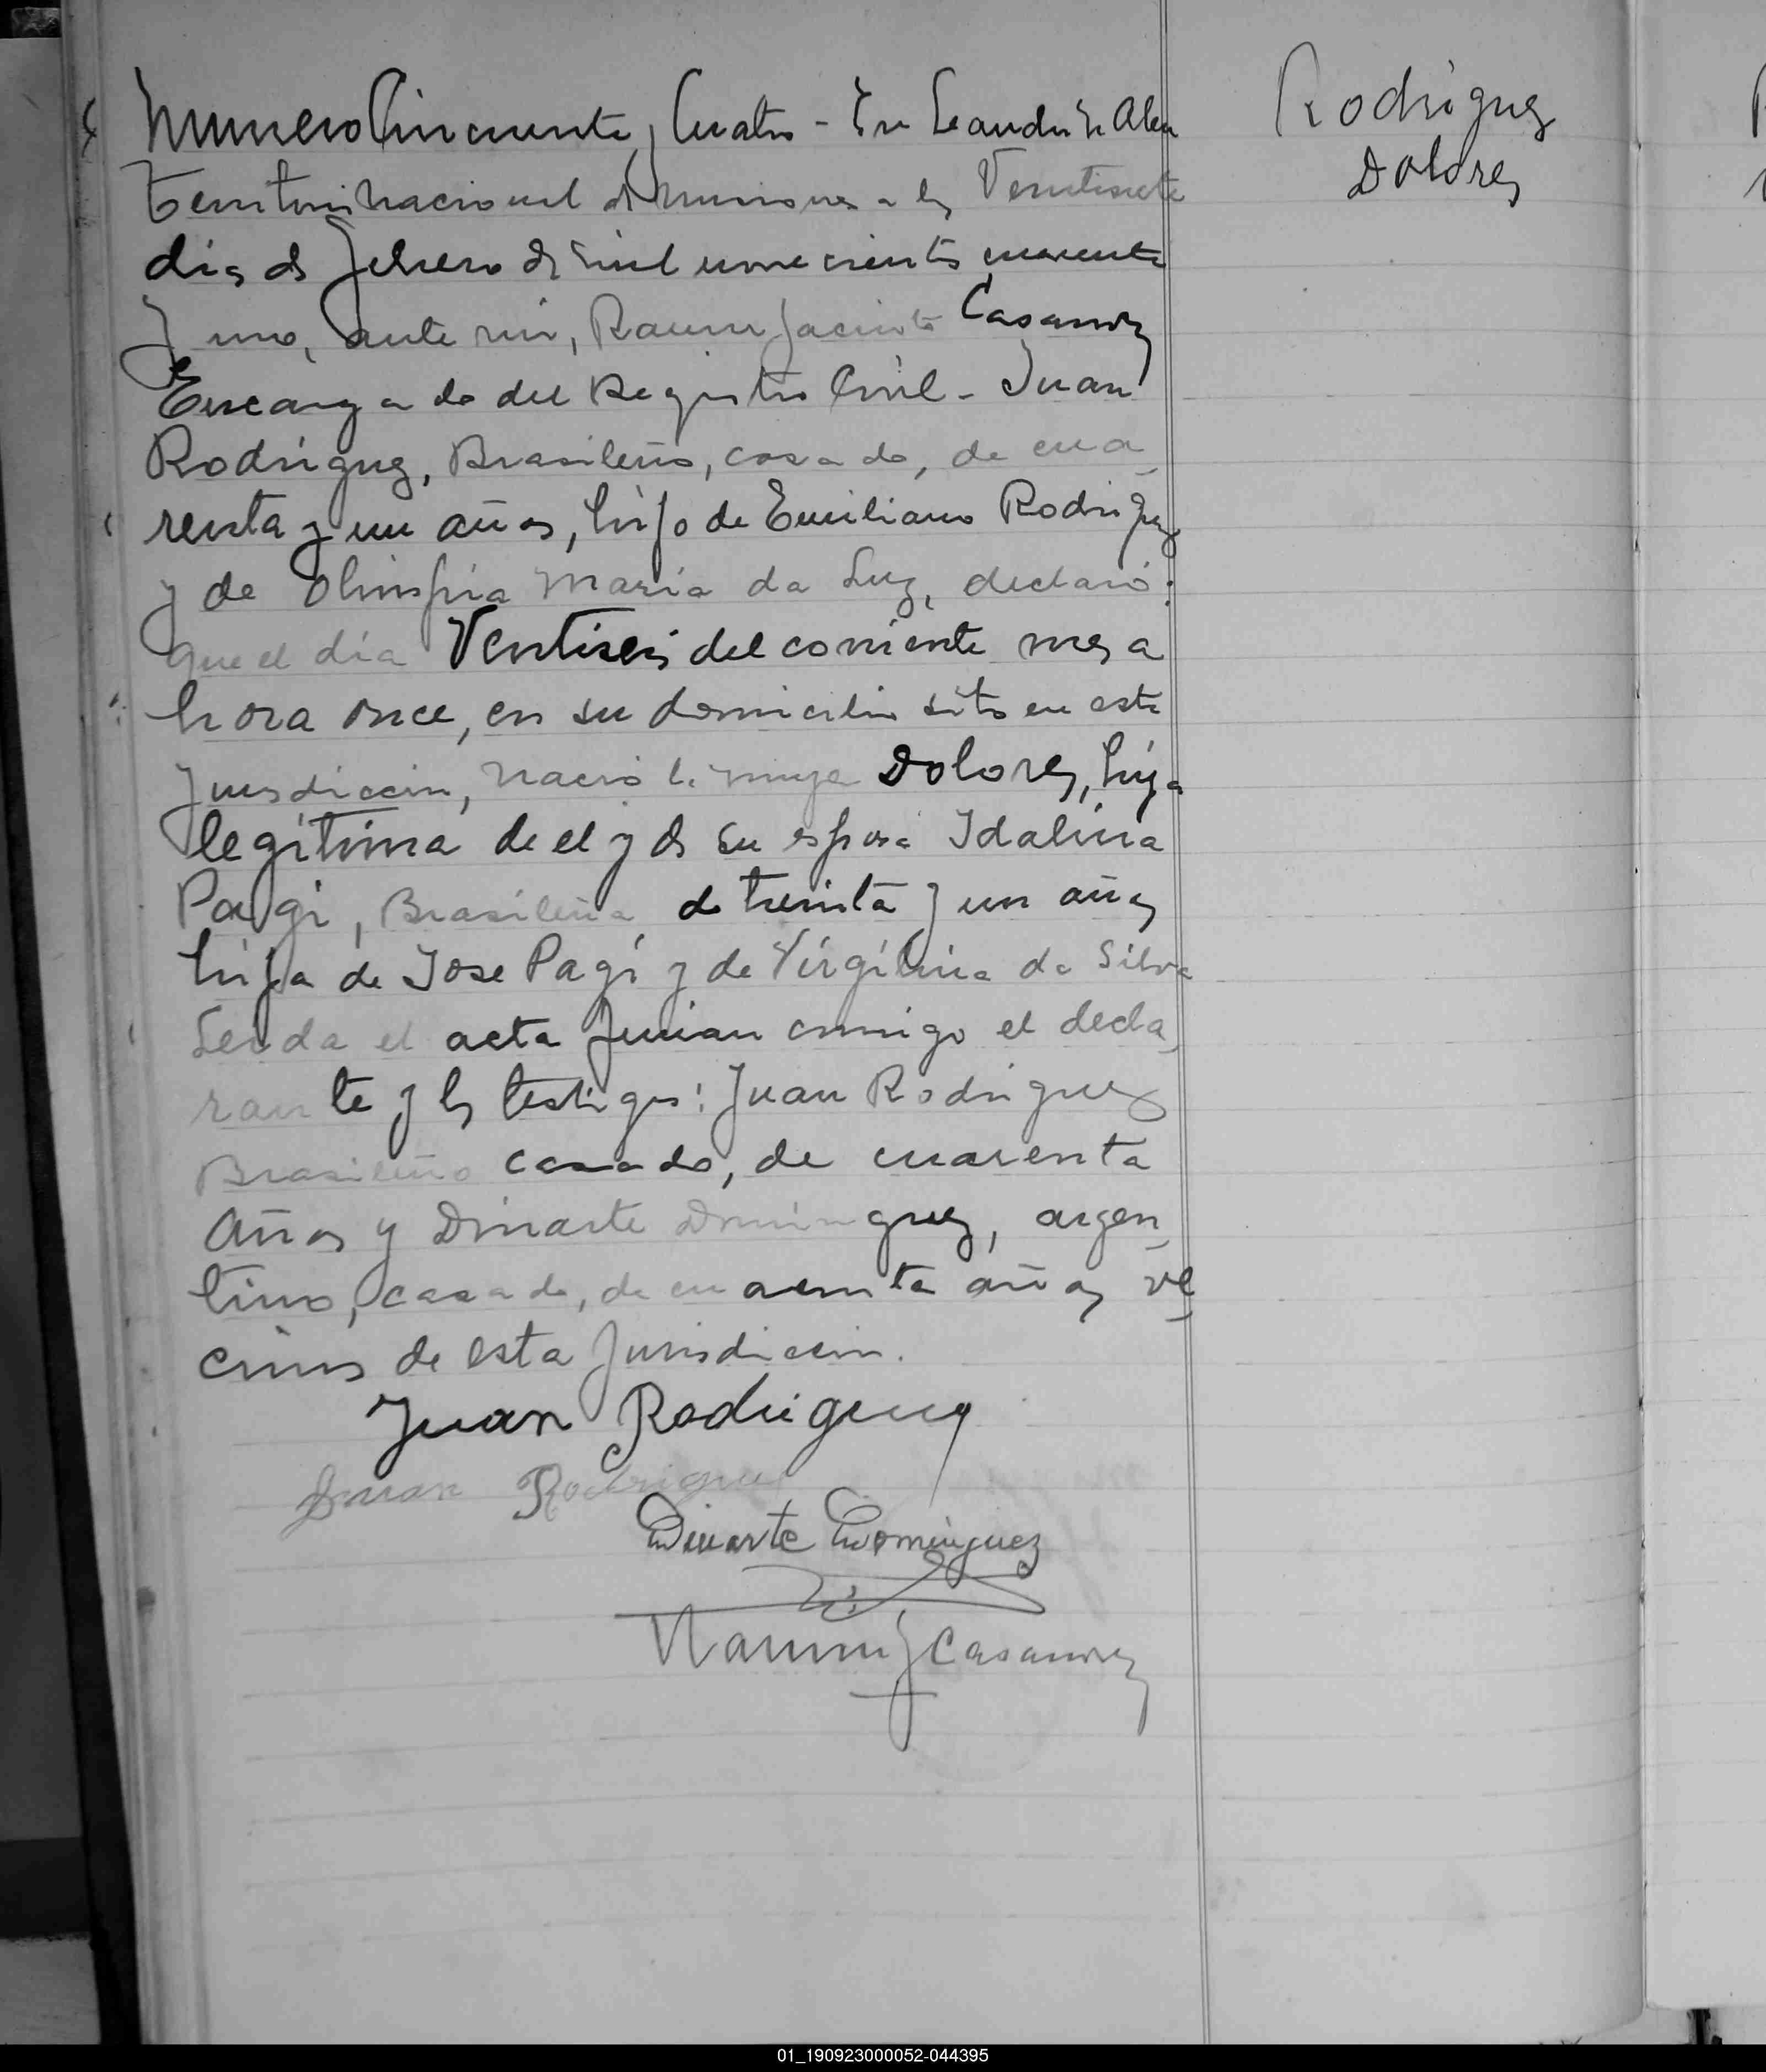 Numero Cincuenta y Cuatro - En Leandro N. Alem
Rodriguez
Dolores
Territorio Nacional de Misiones a los Ventisiete
dias de Febrero de mil novecientos cuarenta
y uno, ante mi, Ramon Jacinto Casanova
Encargado del Registro Civil - Juan
Rodriguez, Brasileño, casado, de cua
renta y un años, hijo de Emiliano Rodriguez
y de Olimpia Maria da Luz, declaró:
que el dia Ventiseis del corriente mes a
hora once, en su domicilio sito en esta
Jurisdiccion, nació la mujer Dolores, hija
legítima de el y de su esposa Idalina
Pagi, Brasileña de treinta y un años
hija de Jose Pagi y de Virgilina da Silva
Leida el acta firman conmigo el decla
rante y los testigos: Juan Rodriguez
Brasileño casado, de cuarenta
años y Dinarte Dominguez, argen
tino, casado, de cuarenta años ve
cinos de esta Jurisdiccion.
Juan Rodriguez
Juan Rodriguez
Dinarte Dominguez
Ramon J Casanova
01_190923000052-044395